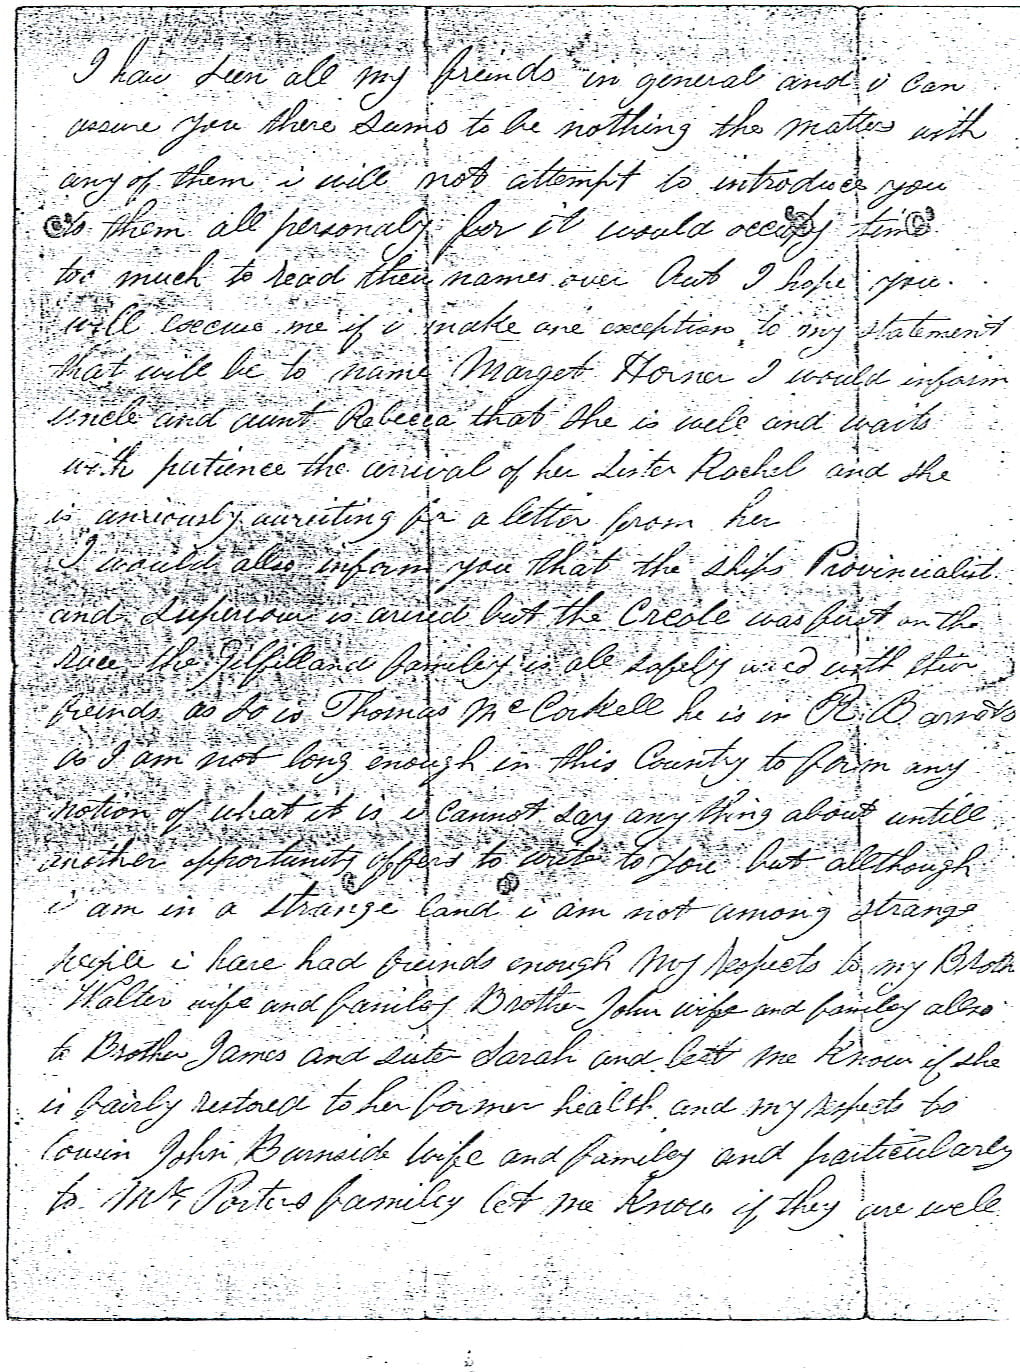 I have seen all my freinds in general and i can
assure you there sums to be nothing the matter with
any of them i will not attempt to introduce you
to them all personaly for it would occupy time
too much to read their names over but I hope you
will excuse me if i make one exception to my statement
that will be to name Marget Horner I would inform
uncle and aunt Rebecca that she is well and waits
with patience the arrival of her sister Rachel and she
is anxiously awaiting for a letter from her
I would allso inform you that the ships Provincialist
and Superiour is arived but the Creole was first on the
race the Gilfilland familey is all safely with their
freinds as so is Thomas Mc Corkell he is in R.
as I am not long enough in this Country to form any
notion of what it is i cannot say any thing about untill
another opportunity offers to write to you but allthough
i am in a strange land i am not among strange
people i have had freinds enough My respects to my Broth
Walter wife and familey Brother John wife and familey allso
to Brother James and sister Sarah and lett me know if she
is fairly restored to her former health and my respects to
Cousin John Burnside wife and familey and particularly
to Mr Porters familey let me know if they are well